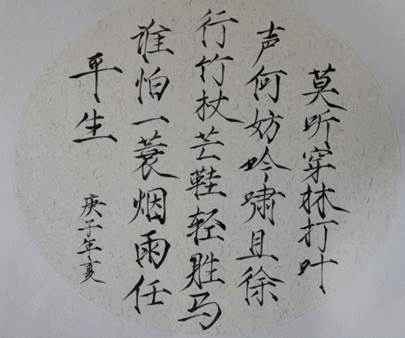 莫听穿林打叶
声何妨吟啸且徐
行竹杖芒鞋轻胜马
谁怕一蓑烟雨任
平生
庚子年夏